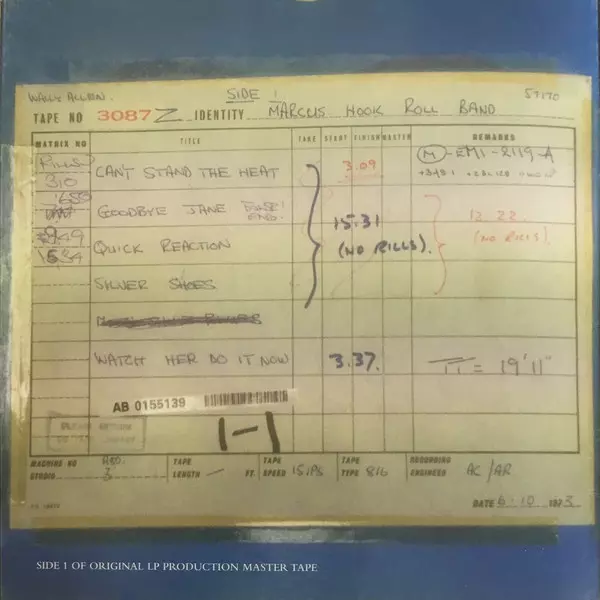 WALLY ALLEN. SIDE 1 57170
TAPE NO 3087Z IDENTITY MARCUS HOOK ROLL BAND
MATRIX NO TITLE TAKE START FINISH MASTER REMARKS
RILLS
310 CAN'T STAND THE HEAT 3.09 (M)-EMI-2119-A
GOODBYE JANE END.
QUICK REACTION 15.31 12.22
1534 (NO RILLS). (NO RILLS).
SILVER SHOES
WATCH HER DO IT NOW 3.37. TT = 19'11"
AB 0155139
PLEASE RETURN
1-1
MACHINE NO TAPE TAPE TAPE RECORDING
STUDIO 3 LENGTH — FT. SPEED 15 IPS TYPE 816 ENGINEER AC/AR
DATE 6-10 1973
SIDE 1 OF ORIGINAL LP PRODUCTION MASTER TAPE